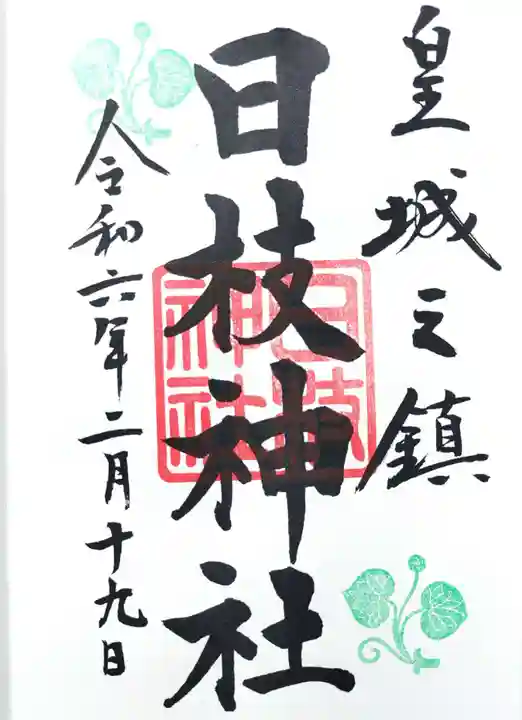 皇城之鎮
日枝神社
日枝
神社
令和六年二月十九日